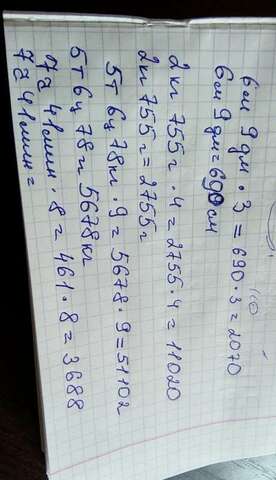 6 см 9 дм · 3 = 690 · 3 = 2070
6 см 9 дм = 690 см
2 кг 755 г · 4 = 2755 · 4 = 11020
2 кг 755 г = 2755 г
5т 6ц 78кг · 9 = 5678 · 9 = 51102
5т 6ц 78г = 5678кг
7ч 41мин · 8 = 461 · 8 = 3688
7ч 41мин =